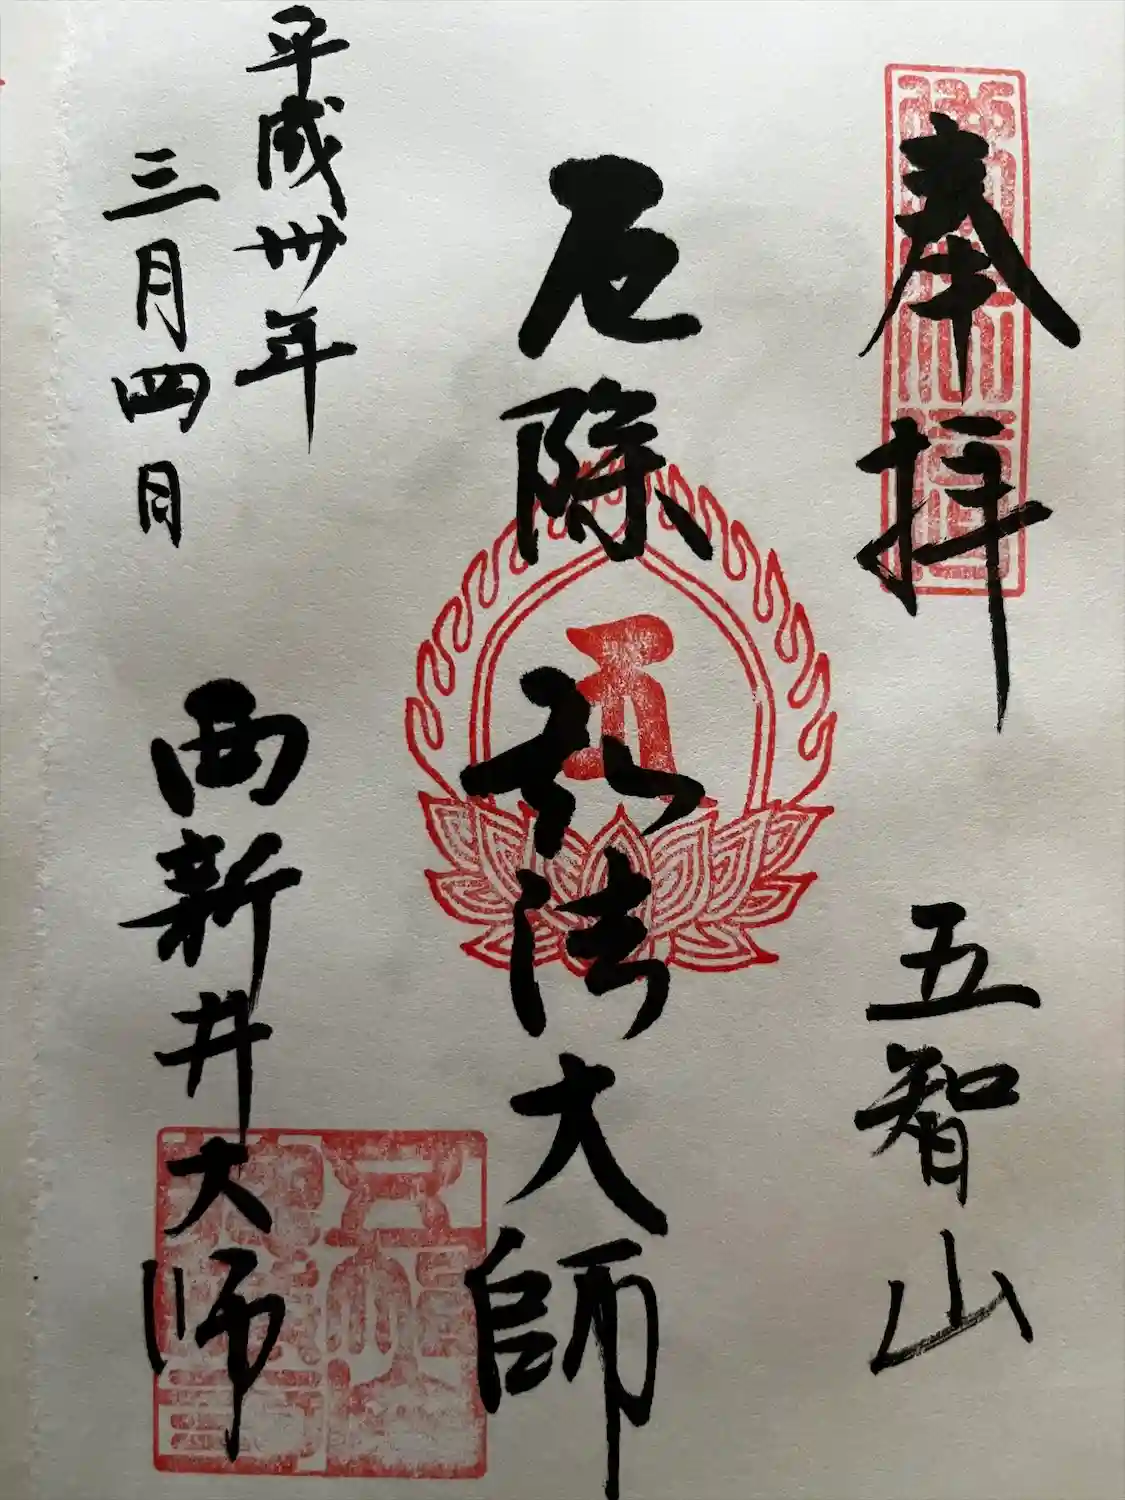 奉拝
五智山
厄除
弘法大師
平成卅年
三月四日
西新井大師